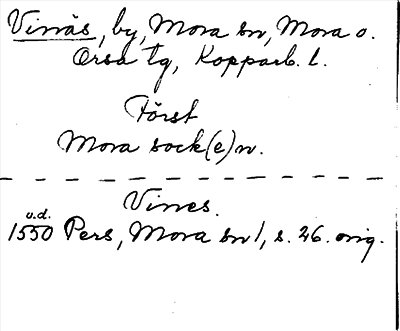 Vinäs, by, Mora sn, Mora o.
Orsa tg, Kopparb. l.
Först
Mora sock(e)n.
Vines.
u.d.
1550 Pers, Mora sn 1, s. 26. orig.